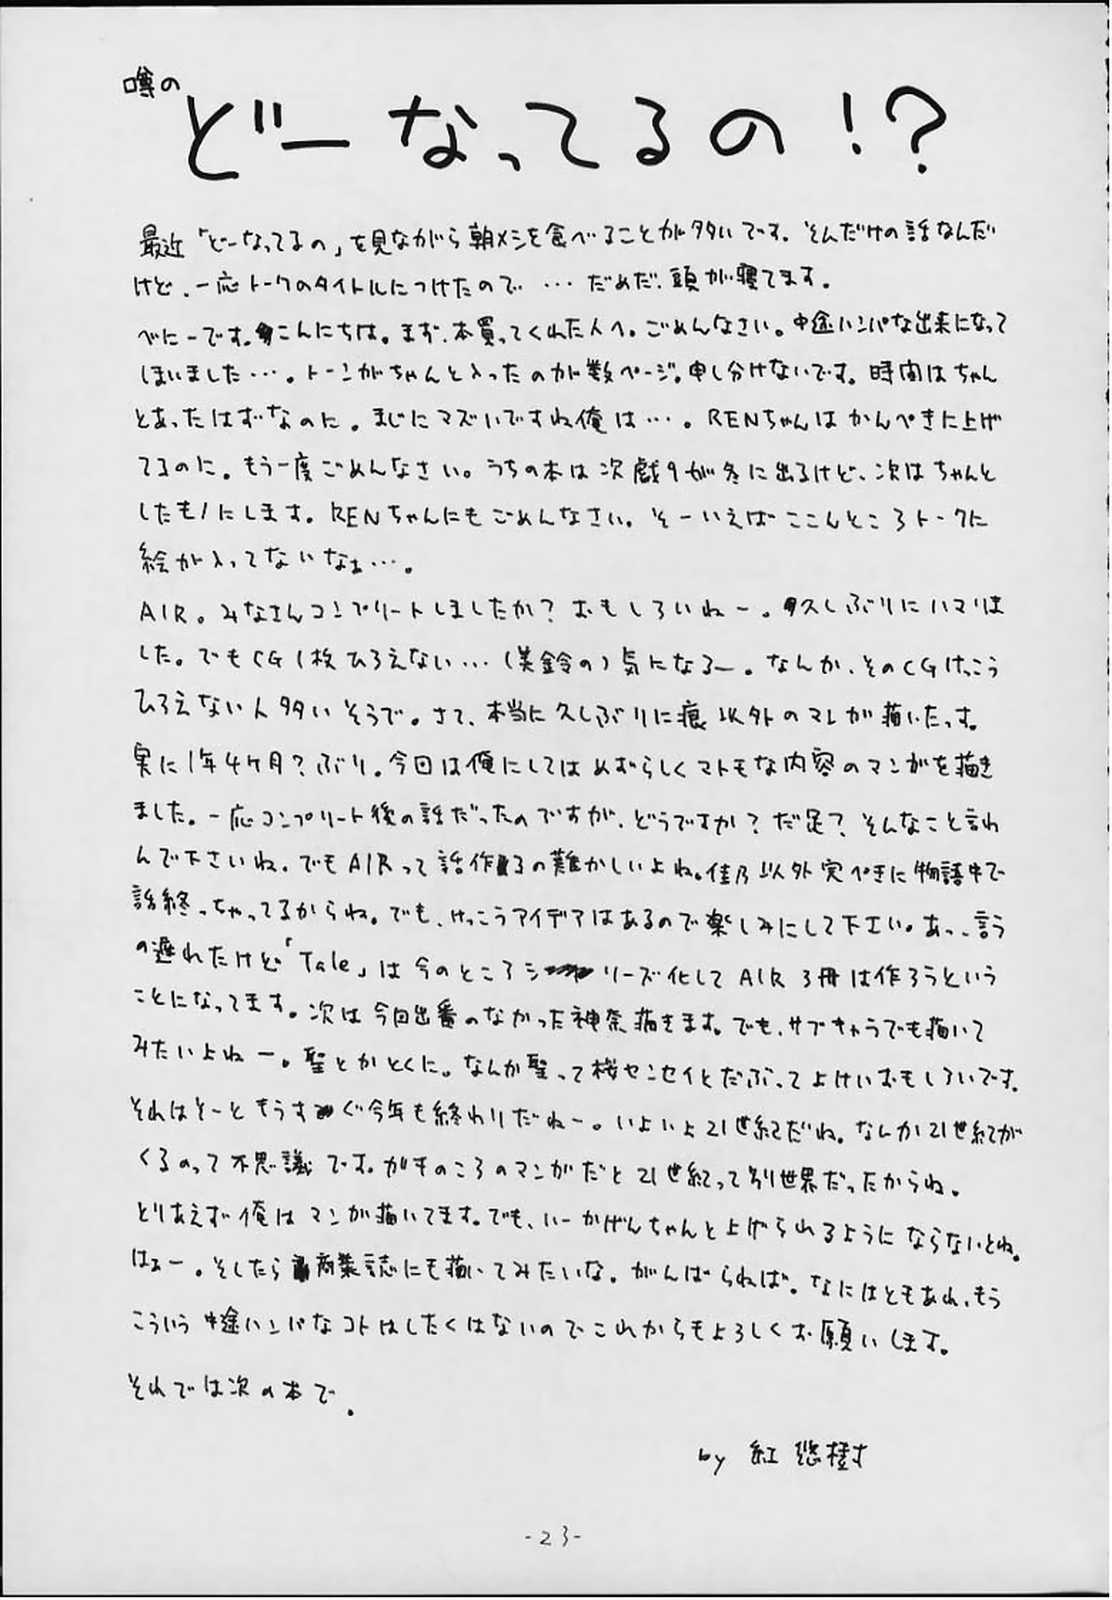 噂の
どーなってるの!?
最近「どーなってるの」を見ながら朝メシを食べることが多いです。そんだけの話なんだ
けど、一応トークのタイトルにつけたので…だめだ、頭が寝てます。
べにーです。こんにちは。まず、本買ってくれた人へ。ごめんなさい。中途ハンパな出来になって
しまいました…。トーンがちゃんと入ったのが数ページ。申し分けないです。時間はちゃん
とあったはずなのに。まじにマズいですね俺は…。RENちゃんはかんぺきに上げ
てるのに。もう一度ごめんなさい。うちの本は次戯9が冬に出るけど、次はちゃんと
したもノにします。RENちゃんにもごめんなさい。そーいえばここんところトークに
絵が入ってないなぁ…。
AIR。みなさんコンプリートしましたか?おもしろいねー。久しぶりにハマりま
した。でもCG1枚ひろえない…(美鈴の)気になるー。なんか、そのCGけっこう
ひろえない人多いそうで。さて、本当に久しぶりに痕以外のマンガ描いたっす。
実に1年4ケ月?ぶり。今回は俺にしてはめずらしくマトモな内容のマンガを描き
ました。一応コンプリート後の話だったのですが、どうですか?だ足?そんなこと言わ
んで下さいね。でもAIRって話作るの難かしいよね。佳乃以外完ぺきに物語中で
話終っちゃってるからね。でも、けっこうアイデアはあるので楽しみにして下さい。あっ、言う
の遅れたけど「Tale」は今のところシリーズ化してAIR3冊は作ろうという
ことになってます。次は今回出番のなかった神奈描きます。でも、サブキャラでも描いて
みたいよねー。聖とかとくに。なんか聖って桜センセイとだぶってよけいおもしろいです。
それはそーともうすぐ今年も終わりだねー。いよいよ21世紀だね。なんか21世紀が
くるのって不思議です。ガキのころのマンガだと21世紀って別世界だったからね。
とりあえず俺はマンガ描いてます。でも、いーかげんちゃんと上げられるようにならないとね。
はぁー。そしたら商業誌にも描いてみたいな。がんばらねば。なにはともあれ、もう
こういう中途ハンパなコトはしたくはないのでこれからもよろしくお願いします。
それでは次の本で。
by 紅 悠樹
-23-